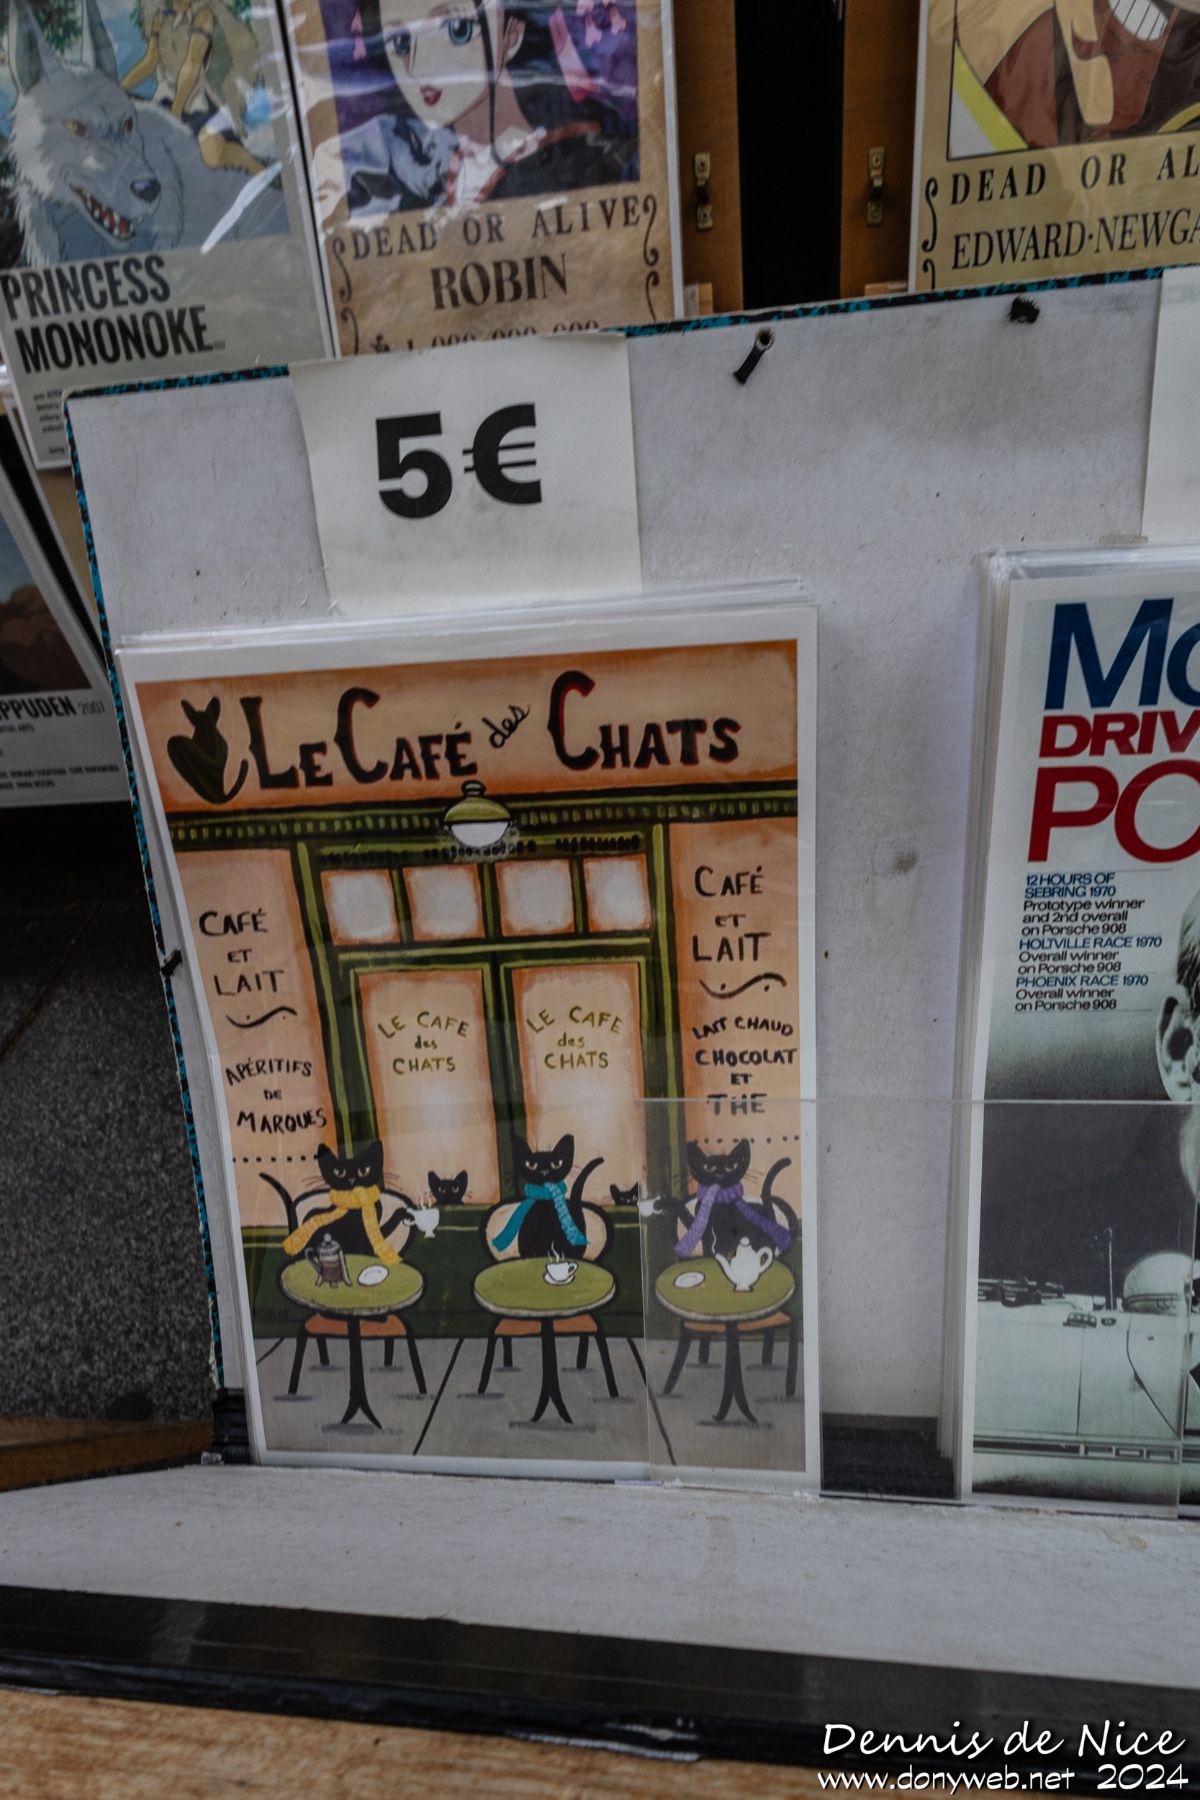 PRINCESS
MONONOKE
DEAD OR ALIVE
ROBIN
DEAD OR AL
EDWARD·NEWGA
5€
PPUDEN 2007
LE CAFÉ des CHATS
CAFÉ
ET
LAIT
APÉRITIFS
DE
MARQUES
LE CAFE
des
CHATS
LE CAFE
des
CHATS
CAFÉ
ET
LAIT
LAIT CHAUD
CHOCOLAT
ET
THE
Mc
DRIV
PO
12 HOURS OF
SEBRING 1970
Prototype winner
and 2nd overall
on Porsche 908
HOLTVILLE RACE 1970
Overall winner
on Porsche 908
PHOENIX RACE 1970
Overall winner
on Porsche 908
Dennis de Nice
www.donyweb.net 2024